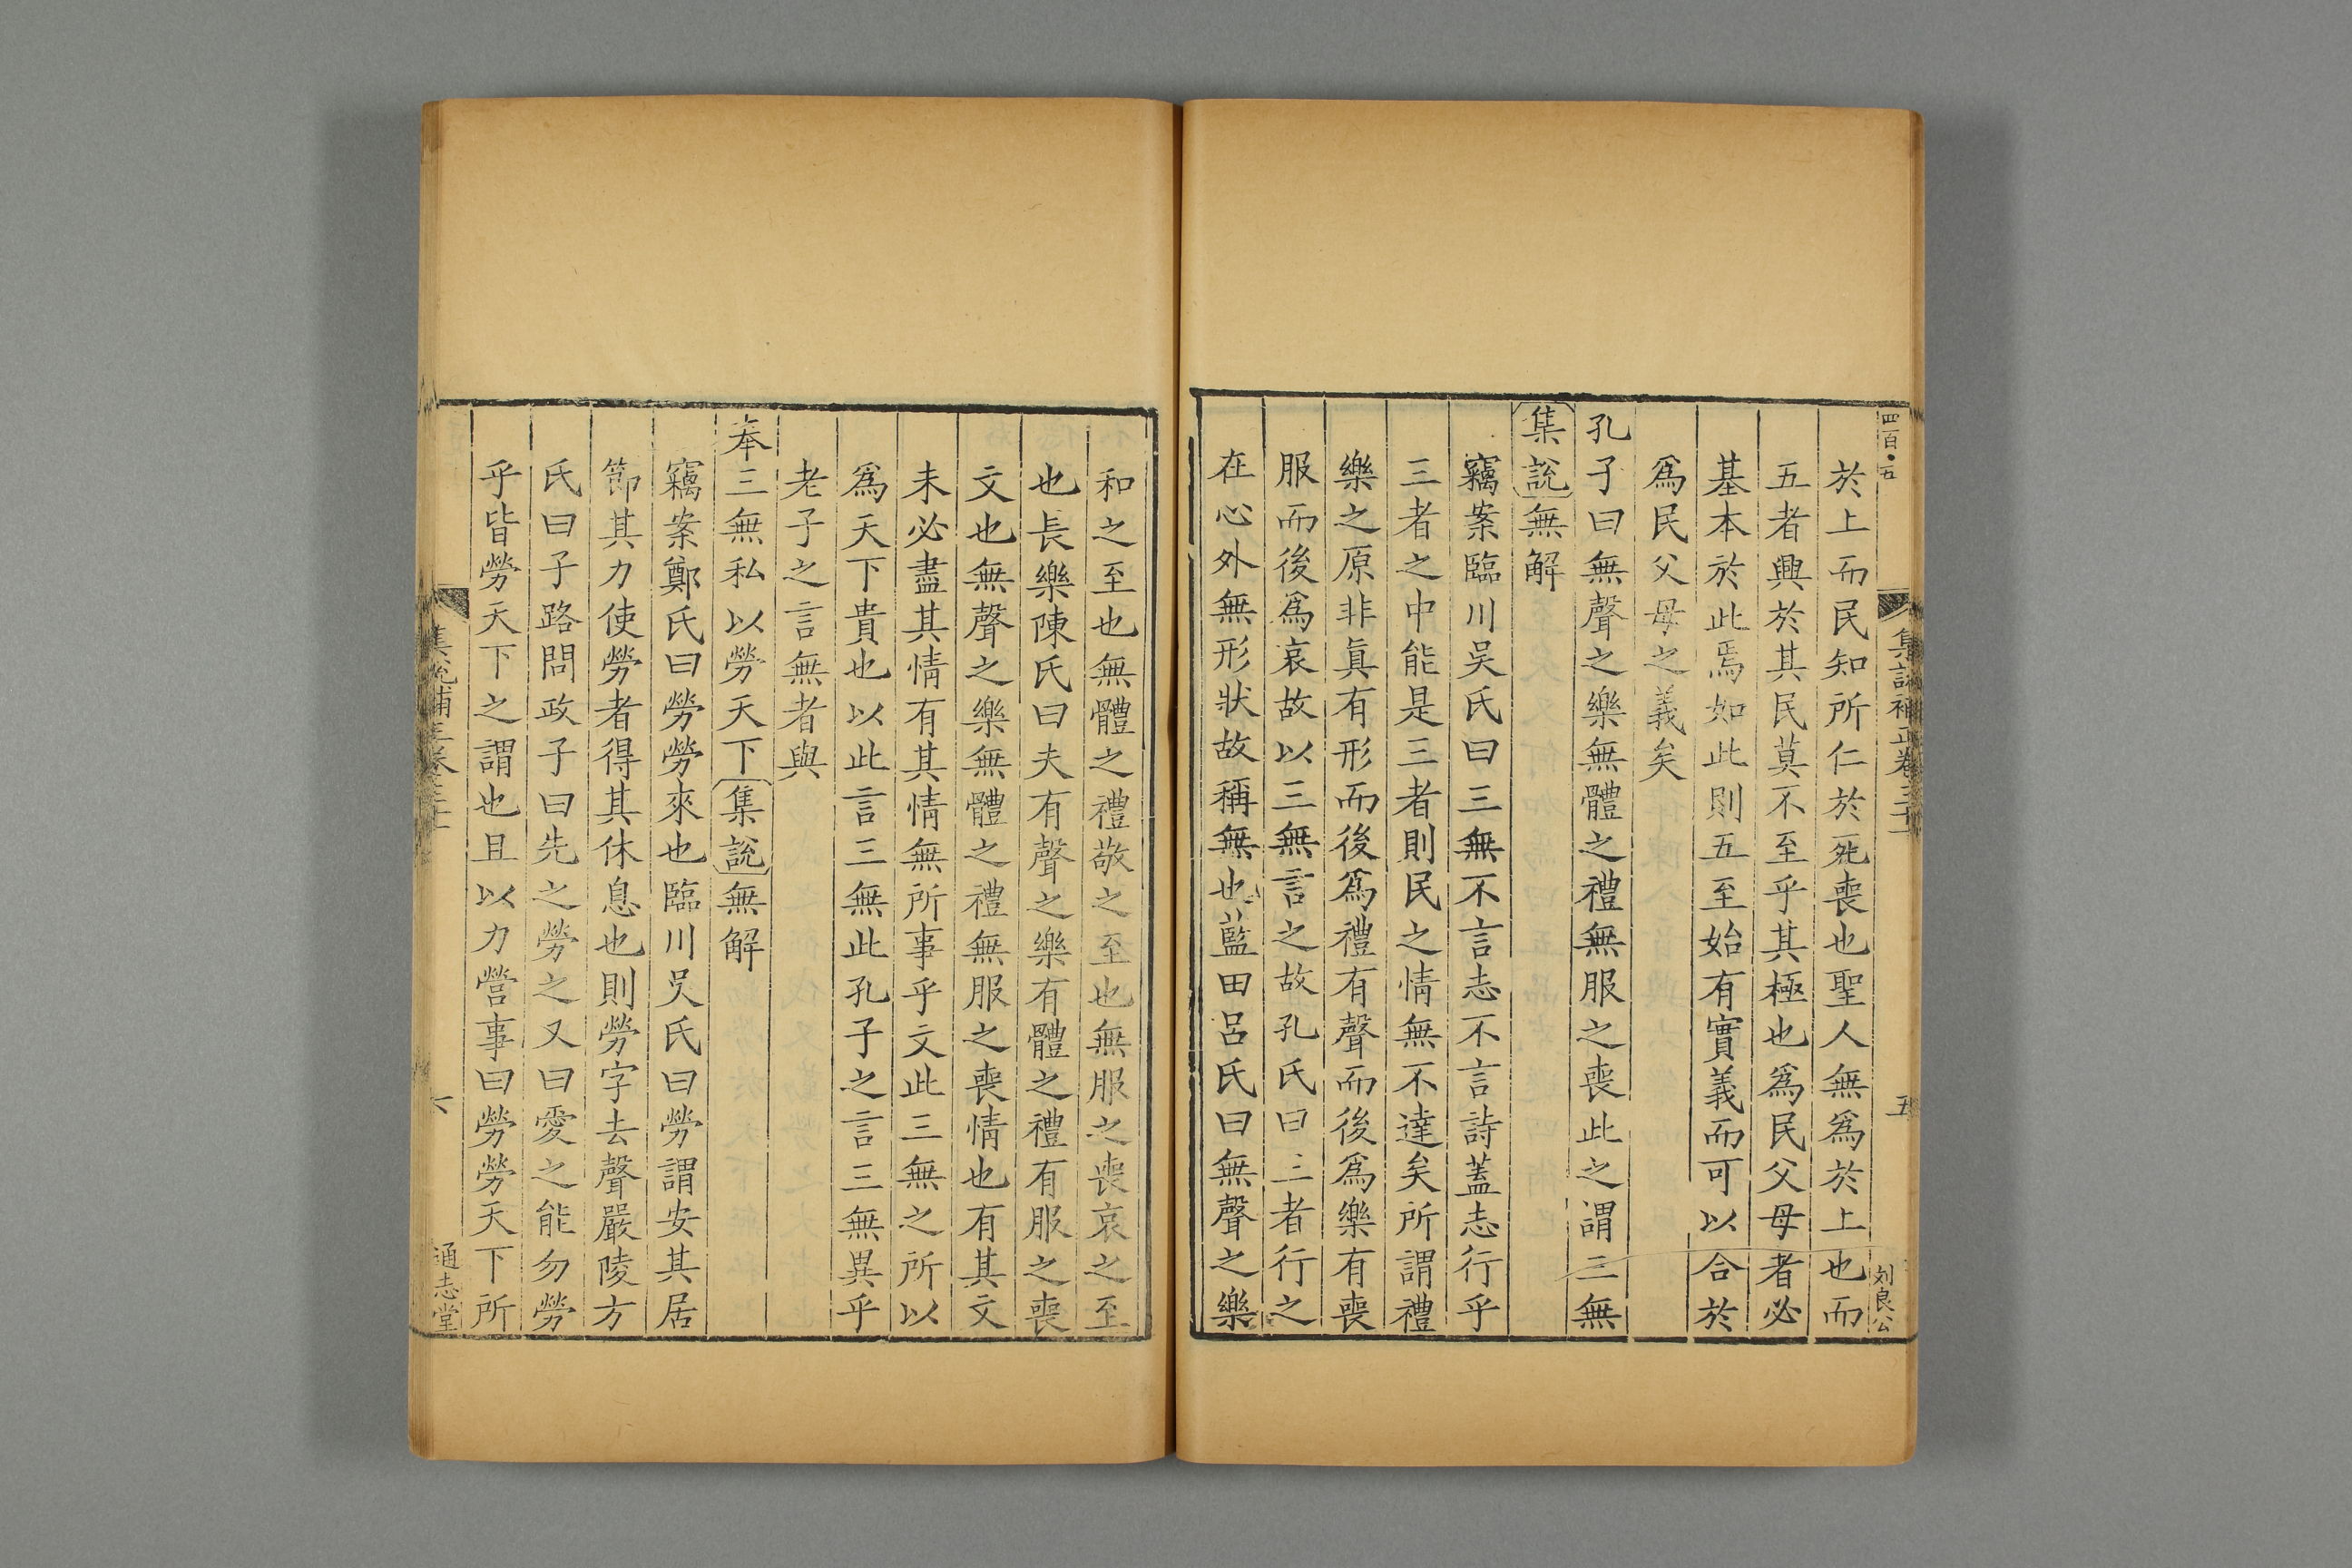 四百五
集說補正卷三十
五
刘良公
於上而民知所仁於死喪也聖人無爲於上也而
五者興於其民莫不至乎其極也爲民父母者必
基本於此焉如此則五至始有實義而可以合於
爲民父母之義矣
孔子曰無聲之樂無體之禮無服之喪此之謂三無
集說無解
竊案臨川吳氏曰三無不言志不言詩蓋志行乎
三者之中能是三者則民之情無不達矣所謂禮
樂之原非眞有形而後爲禮有聲而後爲樂有喪
服而後爲哀故以三無言之故孔氏曰三者行之
在心外無形狀故稱無也藍田呂氏曰無聲之樂
和之至也無體之禮敬之至也無服之喪哀之至
也長樂陳氏曰夫有聲之樂有體之禮有服之喪
文也無聲之樂無體之禮無服之喪情也有其文
未必盡其情有其情無所事乎文此三無之所以
爲天下貴也以此言三無此孔子之言三無異乎
老子之言無者與
奉三無私以勞天下集說無解
竊案鄭氏曰勞勞來也臨川吳氏曰勞謂安其居
節其力使勞者得其休息也則勞字去聲嚴陵方
氏曰子路問政子曰先之勞之又曰愛之能勿勞
乎皆勞天下之謂也且以力營事曰勞勞天下所
六
通志堂